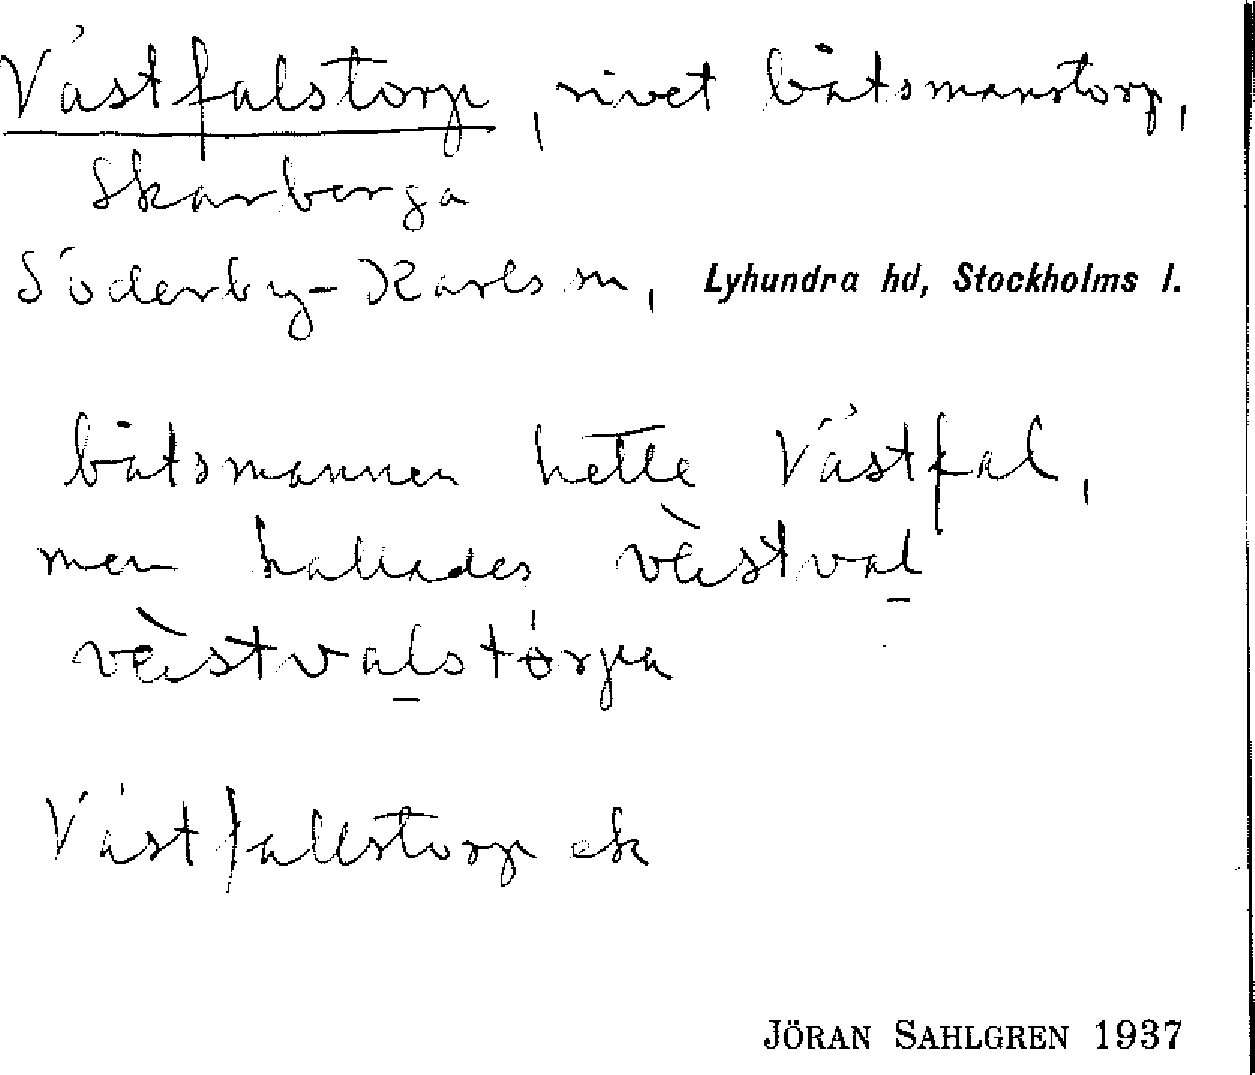 Västfalstorp, rivet båtsmanstorp,
Skarberga
Söderby-Karls sn, Lyhundra hd, Stockholms l.
båtsmannen hette Västfal,
men kallades vä̀stval
vä̀stvalstórpa
Västfallstorp ek
JÖRAN SAHLGREN 1937